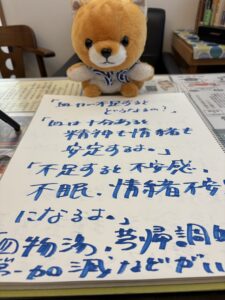 「血が不足すると
どうなるの?」
「血は十分あると
精神も情緒も
安定するよ。」
「不足すると不安感、
不眠、情緒不安
になるよ。」
四物湯、芎帰調血
第一加減などがい